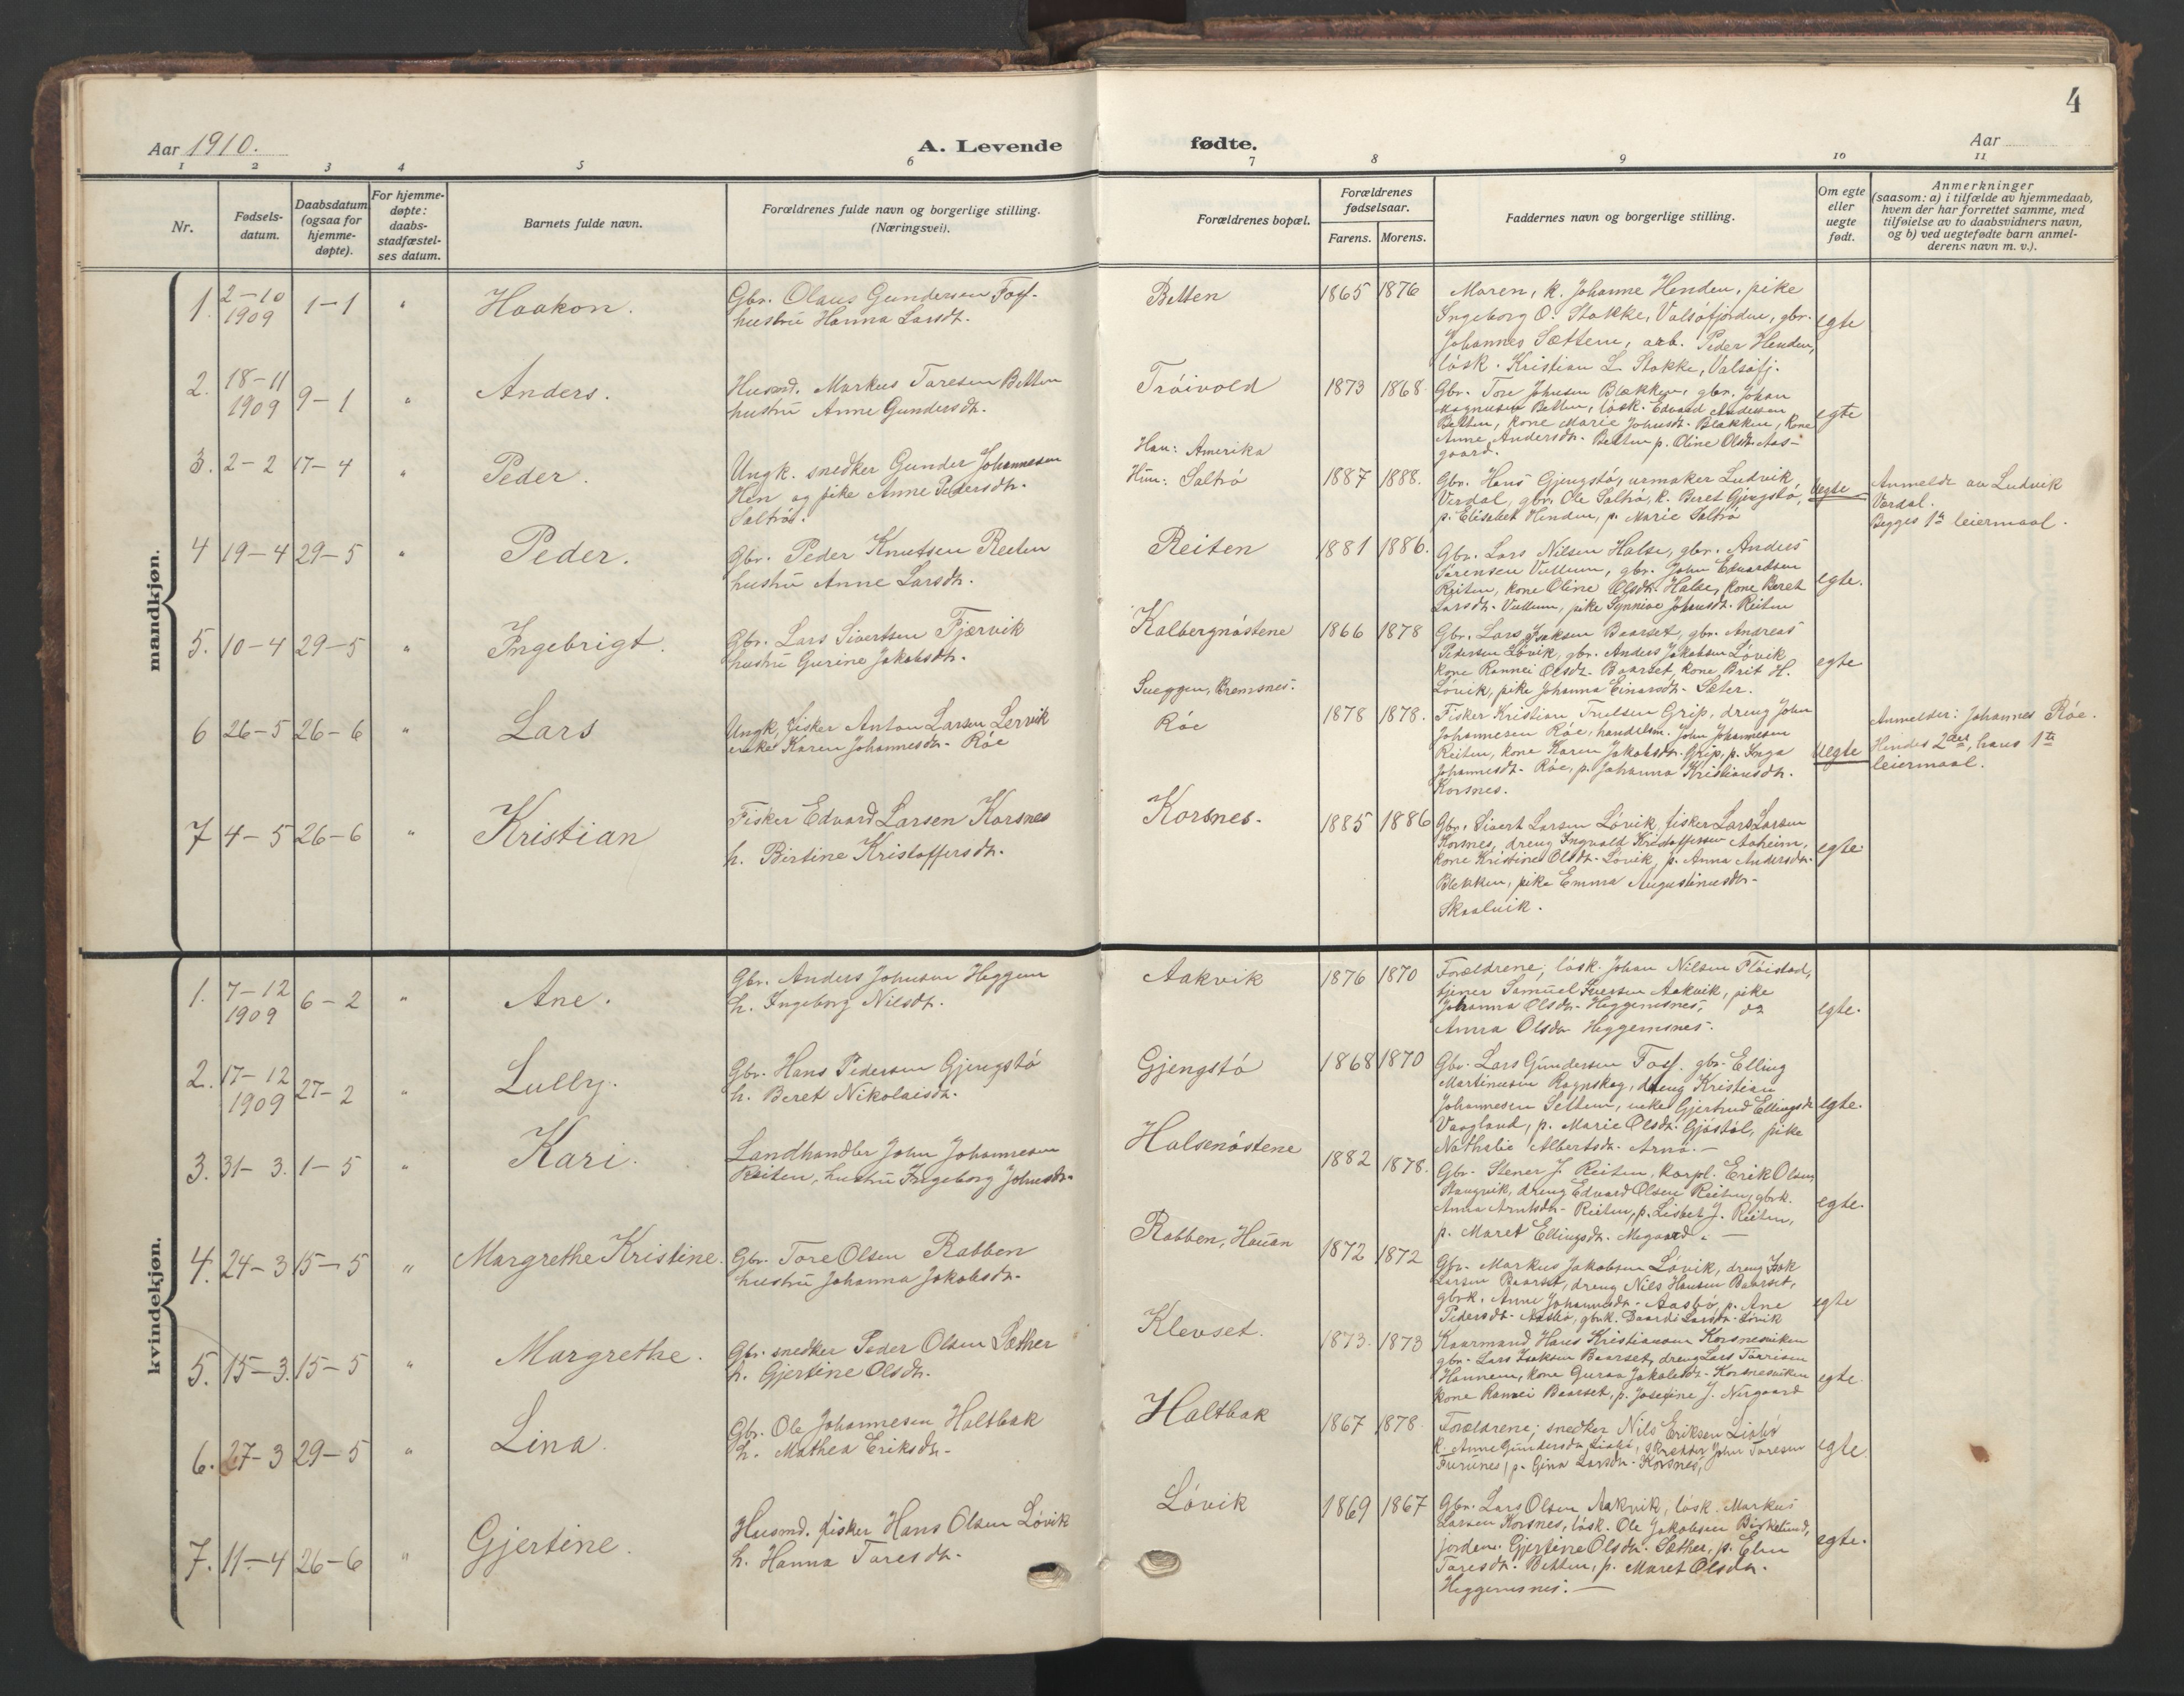 4
Aar 1910.
A. Levende
fødte.
Aar
1 2 3 4 5 6 7 8 9 10 11
Nr.
Fødsels-
datum.
Daabsdatum
(ogsaa for
hjemme-
døpte).
For hjemme-
døpte:
daabs-
stadfæstel-
ses datum.
Barnets fulde navn.
Forældrenes fulde navn og borgerlige stilling.
(Næringsvei).
Forældrenes bopæl.
Forældrenes
fødselsaar.
Farens. Morens.
Faddernes navn og borgerlige stilling.
Om egte
eller
uegte
født.
Anmerkninger
(saasom: a) i tilfælde av hjemmedaab,
hvem der har forrettet samme, med
tilføielse av to daabsvidners navn,
og b) ved uegtefødte barn anmel-
derens navn m. v.).
mandkjøn.
1. 2-10
1909 1-1 " Haakon.
Gbr. Olaus Gundersen
hustru Hanna Larsdt.
Betten 1865 1876
Maren, k. Johanne Henden, pike
Ingeborg O. Stokke, Valsøfjorden, gbr.
Johannes Sættem, arb. Peder Henden,
løsk. Kristian L. Stokke, Valsøfj.
egte
2. 18-11
1909 9-1 " Anders.
Husmd. Markus Toresen Betten
hustru Anne Gundersdt.
Trøivold 1873 1868
Gbr. Tore Johnsen Blækken, gbr. Johan
Magnusen Betten, løsk. Edvard Andersen
Betten, kone Marie Johnsdt. Blækken, kone
Anne Andersdt. Betten p. Oline Olsdt. Aas-
gaard.
egte
3. 2-2 17-4 " Peder.
Ungk. snedker Gunder Johannesen
Hen og pike Anne Pedersdt.
Saltrø.
Han: Amerika
Hun: Saltrø 1887 1888.
Gbr. Hans Gjengstø, urmaker Ludvik
Verdal, gbr. Ole Saltrø, k. Beret Gjengstø,
p. Elisabet Henden, p. Marie Saltrø
Uegte
Anmeldt av Ludvik
Verdal.
Begges 1ste leiermaal.
4 19-4 29-5 " Peder.
Gbr. Peder Knutsen Reiten
hustru Anne Larsdt.
Reiten 1881 1886.
Gbr. Lars Nilsen Halse, gbr. Anders
Sørensen Vullum, gbr. John Edvardsen
Reiten, kone Oline Olsdt. Halse, kone Beret
Larsdt. Vullum, pike Synnøve Johnsdt. Reiten
egte.
5. 10-4 29-5 " Ingebrigt.
Gbr. Lars Sivertsen Fjærvik
hustru Gurine Jakobsdt.
Kalbergnøstene 1866 1878
Gbr. Lars Isaksen Baarset, gbr. Andreas
Pedersen Løvik, gbr. Anders Jakobsen Løvik
kone Rannei Olsdt. Baarset, kone Brit H.
Løvik, pike Johanna Einarsdt. Sæter.
egte
6 26-5 26-6 " Lars
Ungk, fisker Anton Larsen Lervik
enke Karen Johannesdt. Røe
Sveggen, Bremsnes.
Røe 1878 1878.
Fisker Kristian Truelsen Grip, dreng John
Johannesen Røe, handelsm. John Johannesen
Reiten, kone Karen Jakobsdt. Grip, p. Inga
Johannesdt. Røe, p. Johanna Kristiansdt.
Korsnes.
Uegte
Anmelder: Johannes Røe.
Hendes 2det, hans 1ste
leiermaal.
7 4-5 26-6 " Kristian
Fisker Edvard Larsen Korsnes
h. Birtine Kristoffersdt.
Korsnes. 1885 1886
Gbr. Sivert Larsen Løvik, fisker Lars Larsen
Korsnes, dreng Ingvald Kristoffersen Aaheim,
kone Kristine Olsdt. Løvik, p. Anna Andersdt.
Blekken, pike Emma Augustinusdt.
Skaalvik.
egte
kvindekjøn.
1. 7-12
1909 6-2 " Ane.
Gbr. Anders Johnsen Heggem
h. Ingeborg Nilsdt.
Aakvik 1876 1870
Forældrene, løsk. Johan Nilsen Fløistad,
tjener Samuel Iversen Aakvik, pike
Johanna Olsdt. Heggemsnes, do
Anna Olsdt. Heggemsnes.
egte.
2. 17-12
1909 27-2 " Lully.
Gbr. Hans Pedersen Gjengstø
h. Beret Nikolaisdt.
Gjengstø 1868 1870
Gbr. Lars Gundersen gbr. Elling
Martinusen Rognskog, dreng Kristian
Johannesen Settem, enke Gjertrud Ellingsdt
Vaagland, p. Marie Olsdt. Gjøstøl, pike
Nathalie Albertsdt. Arnø.
egte.
3. 31-3. 1-5 " Kari.
Landhandler John Johannesen
Reiten, hustru Ingeborg Johnsdt.
Halsenøstene 1882 1878.
Gbr. Stener J. Reiten, korpl. Erik Olsen
Stangvik, dreng Edvard Olsen Reiten, gbrk.
Anna Arntsdt. Reiten, p. Lisbet J. Reiten,
p. Maret Ellingsdt. Megaard.
egte.
4. 24-3 15-5 " Margrethe Kristine.
Gbr. Tore Olsen Rabben
hustru Johanna Jakobsdt.
Rabben, Hauan 1872 1872
Gbr. Markus Jakobsen Løvik, dreng Isak
Larsen Baarset, dreng Nils Hansen Baarset,
gbrk. Anne Johannesdt. Aasbø, p. Ane
Pedersdt. Aasbø, gbrk. Larsdt. Løvik
egte
5. 15-3. 15-5 " Margrethe.
Gbr. snedker Peder Olsen Sæther
h. Gjertine Olsdt.
Klevset. 1873. 1873
Kaarmand Hans Kristiansen Korsnesviken
gbr. Lars Isaksen Baarset, dreng Lars Tørrisen
Hannem, kone Guraa Jakobsdt. Korsnesviken
kone Rannei Baarset, p. Josefine J. Nergaard
egte.
6. 27-3 29-5 " Lina.
Gbr. Ole Johannesen Haltbak
h. Mathea Eriksdt.
Haltbak 1867 1878.
Forældrene; snedker Nils Eriksen Liabø
k. Anne Gundersdt Liabø, skredder John Toresen
Furunes, p. Gina Larsdt. Korsnes,
egte.
7. 11-4 26-6 " Gjertine.
Husmd. fisker Hans Olsen Løvik
h. Hanna Toresdt.
Løvik 1869 1867
Gbr. Lars Olsen Aakvik, løsk. Markus
Larsen Korsnes, løsk. Ole Jakobsen Birkelund,
jordem. Gjertine Olsdt. Sæther, p. Elen
Toresdt. Betten, p. Maret Olsdt.
Heggemsnes.
egte.